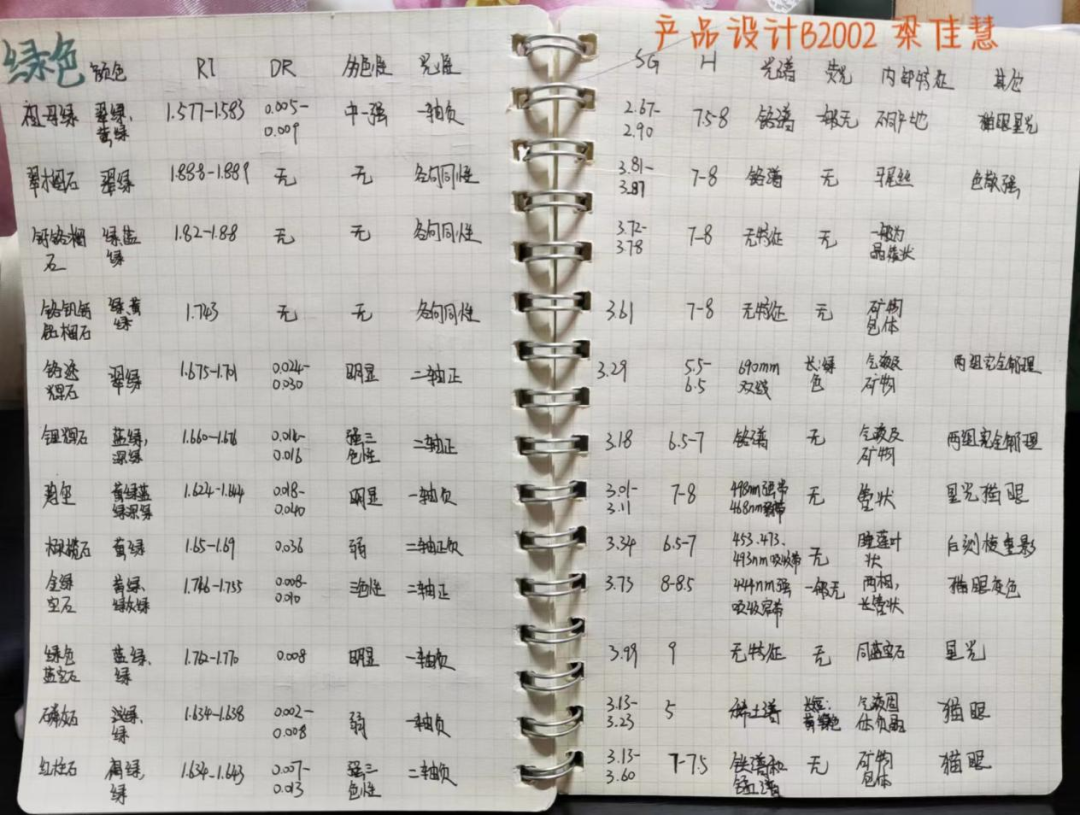 产品设计B2002 梁佳慧
绿色 颜色 RI DR 多色性 光性 SG H 光谱 荧光 内部特征 其它
祖母绿 翠绿、黄绿 1.577-1.583 0.005-0.009 中-强 一轴负 2.67-2.90 7.5-8 铬谱 一般无 猫眼星光
翠榴石 翠绿 1.888-1.889 无 无 各向同性 3.81-3.87 7-8 铬谱 无 马尾丝 色散强
钙铬榴石 绿蓝绿 1.82-1.88 无 无 各向同性 3.72-3.78 7-8 无特征 无 一般为晶簇状
铬钒钙铝榴石 绿、黄绿 1.743 无 无 各向同性 3.61 7-8 无特征 无 矿物包体
铬透辉石 翠绿 1.675-1.701 0.024-0.030 明显 二轴正 3.29 5.5-6.5 690nm双线 长:绿色 气液及矿物 两组完全解理
锂辉石 蓝绿,深绿 1.660-1.676 0.014-0.016 强三色性 二轴正 3.18 6.5-7 铬谱 无 气液及矿物 两组完全解理
碧玺 黄绿蓝绿深绿 1.624-1.644 0.018-0.040 明显 一轴负 3.01-3.11 7-8 498nm强带 468nm弱带 无 管状 星光猫眼
橄榄石 黄绿 1.65-1.69 0.036 弱 二轴正负 3.34 6.5-7 453、473、493nm吸收带 无 睡莲叶状 后刻棱重影
金绿宝石 黄绿、 1.746-1.755 0.008-0.010 三色性 二轴正 3.73 8-8.5 444nm强吸收窄带 一般无 两相,长管状 猫眼变色
绿色蓝宝石 蓝绿、绿 1.762-1.770 0.008 明显 一轴负 3.99 9 无特征 无 同蓝宝石 星光
磷灰石 淡绿、绿 1.634-1.638 0.002-0.008 弱 一轴负 3.13-3.23 5 稀土谱 气液固体负晶 猫眼
红柱石 褐绿、绿 1.634-1.643 0.007-0.013 强三色性 二轴负 3.13-3.60 7-7.5 铁谱和 无 矿物包体 猫眼